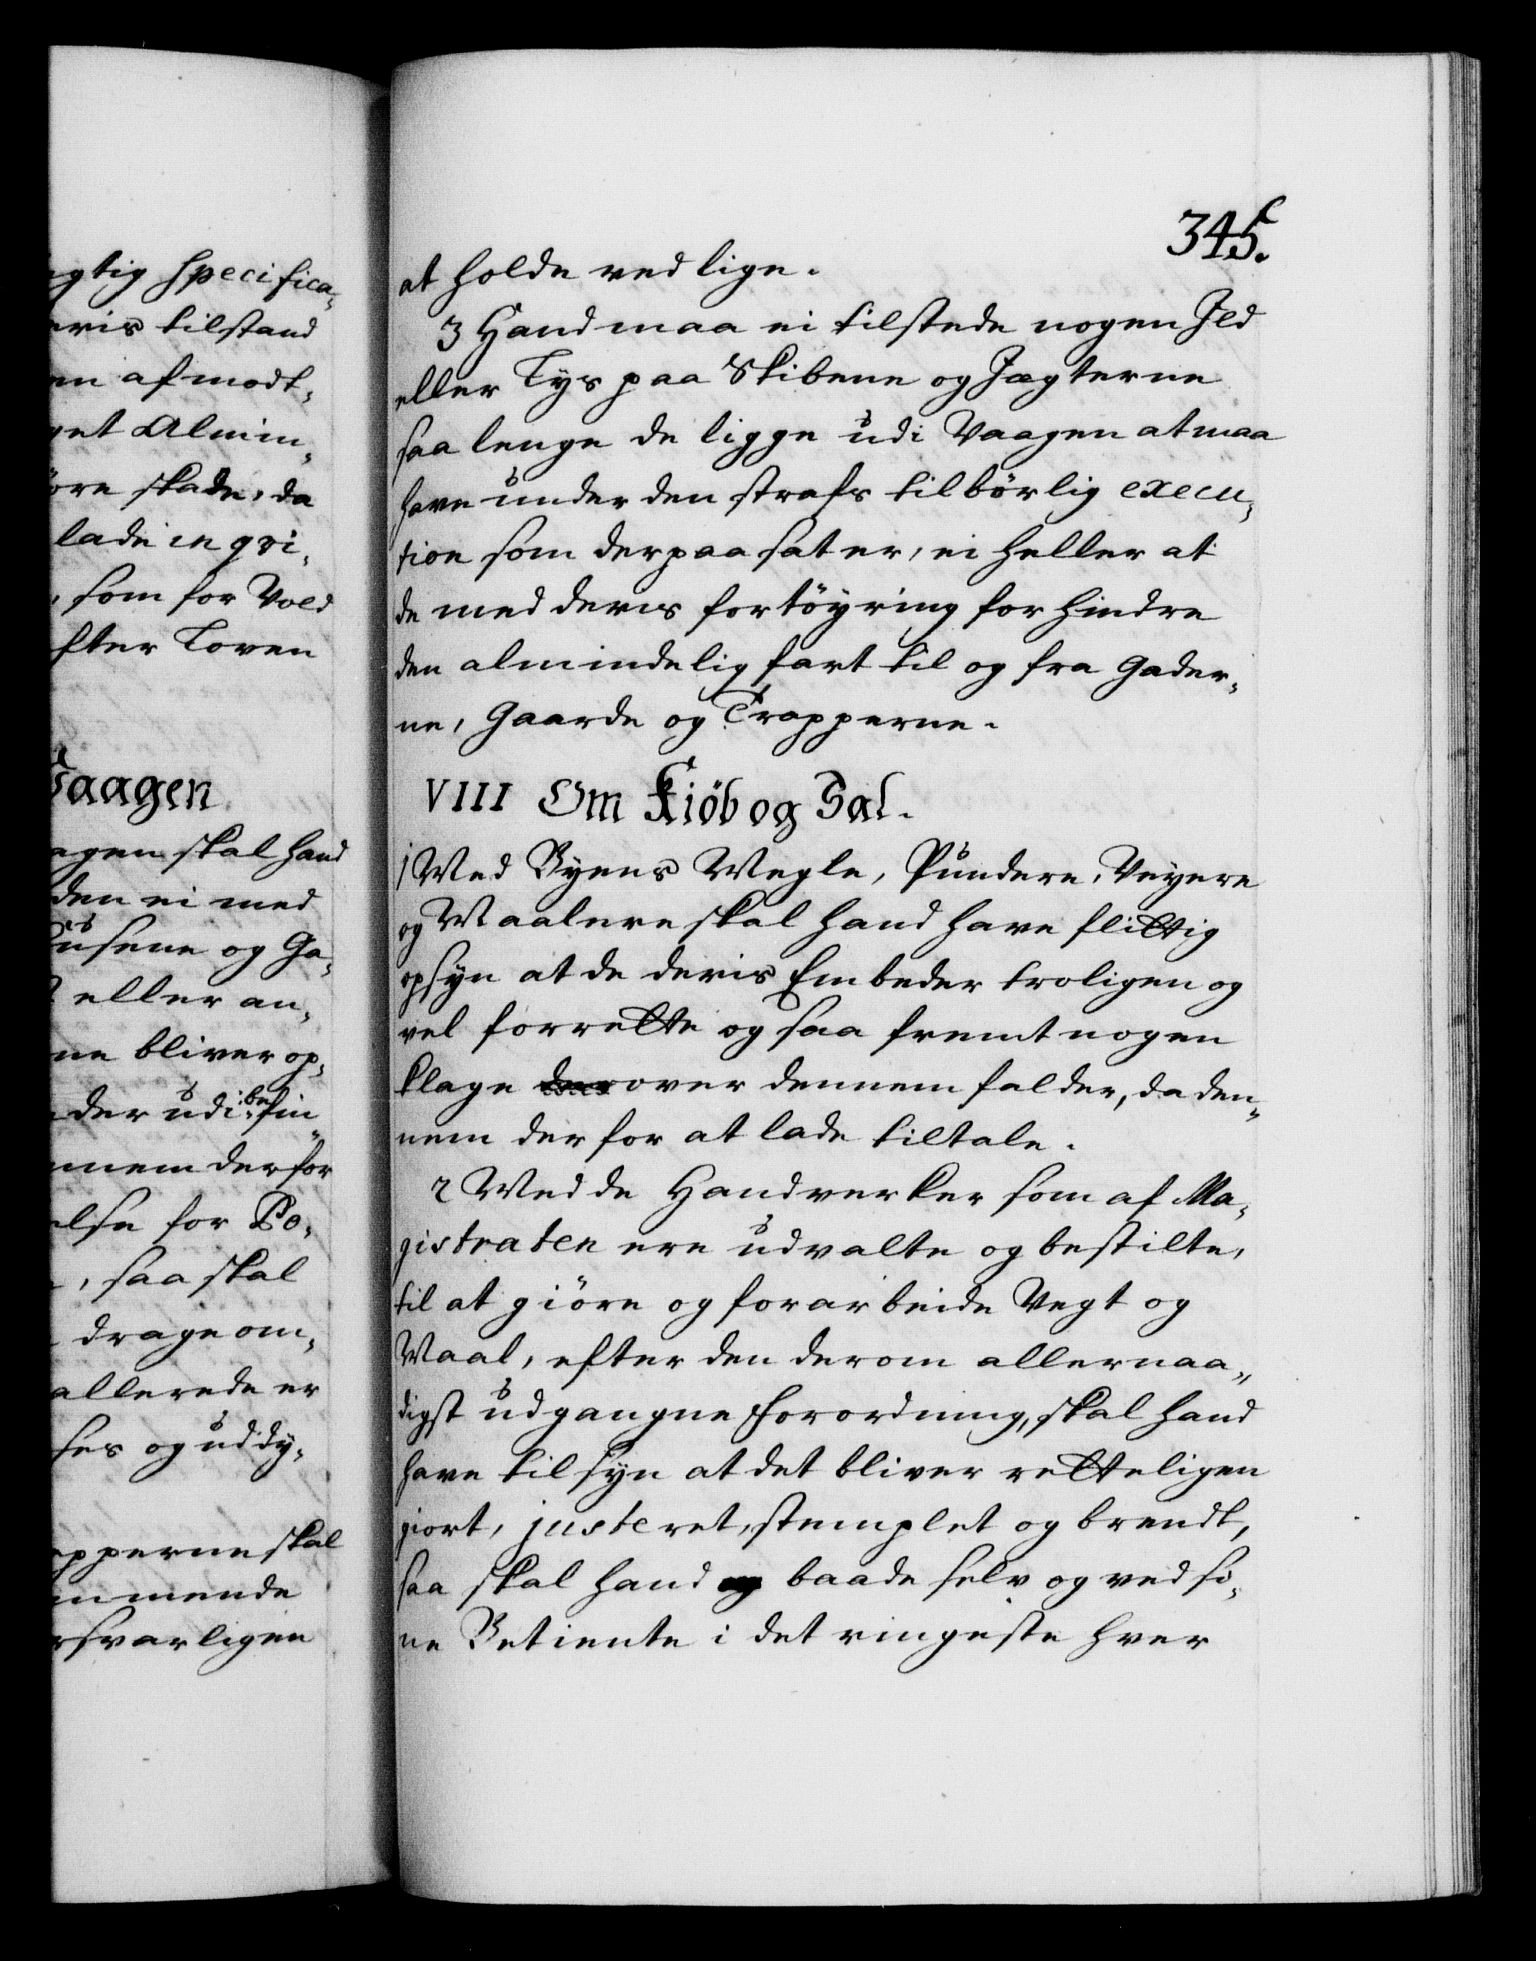 agtig specifica-
eris tilstand
en af modt-
get Almin-
öre skade, da
lade inqvi-
, som for Vold
fter Loven
Vaagen
agen skal hand
den ei med
usene og Ga-
eller an-
ne bliver op-
der udi befin-
nnem derfor
else for Po-
, saa skal
drage om-
allerede er
ses og uddy-
apperne skal
ommende
rsvarligen
345.
at holde ved lige.
3 Hand maa ei tilstede nogen Ild
eller Lys paa Skibene og Jagterne
saa lenge de ligge udi Vaagen at maa
have under den strafs tilbörlig execu-
tion som derpaa sat er, ei heller at
de med deris fortöyring forhindre
den almindelig fart til og fra Gader-
ne, Gaarde og Trapperne.
VIII Om Kiöb og Sal.
1 Med Byens Megle, Pundere, Veyere
og Maalere skal hand have flittig
opsyn at de deris Embeder troligen og
vel forrette og saa fremt nogen
klage der over dennem falder, da den-
nem derfor at lade tiltale.
2 Med de Handverker som af Ma-
gistraten ere udvalte og bestilte,
til at giöre og forarbeide Vegt og
Maal, efter den derom allernaa-
digst udgangne Forordning, skal hand
have tilsyn at det bliver retteligen
giort, justeret, stemplet og brendt,
saa skal hand og baade selv og ved si-
ne Betiente i det ringeste hver